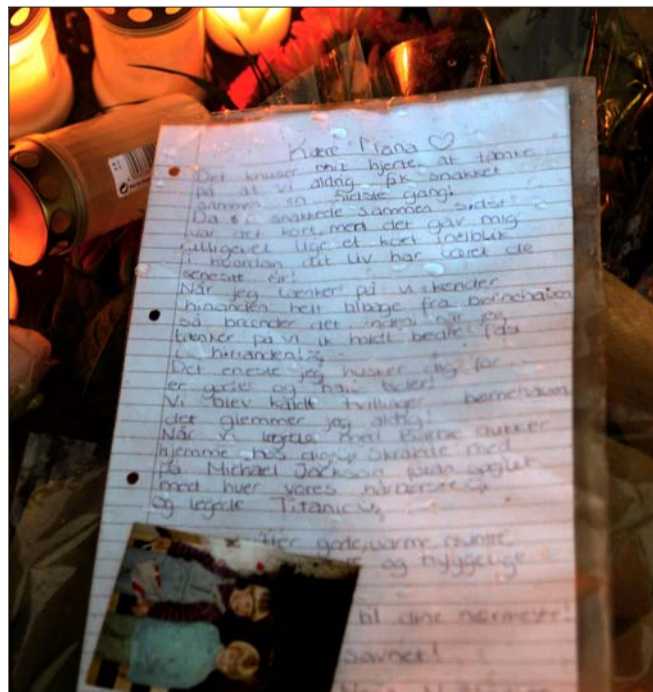 Kære
Det knuser mit hjerte at tænke
på at vi aldrig fik snakket
sammen en sidste gang!
Da vi snakkede sammen sidst
var det kort, men det gav mig
alligevel lige et kort indblik
i hvordan dit liv har været de
seneste år!
Når jeg tænker på vi kender
hinanden helt tilbage fra børnehaven
så brænder det inden i når jeg
tænker på vi ik holdt bedre fast
i hinanden!
Det eneste jeg husker dig for
er gode og tider!
Vi blev kaldt tvillinger børnehaven
det glemmer jeg aldrig!
Når vi legede med Barbie dukker
hjemme hos dig, skrålede med
på Michael Jackson foran spejlet
med hver vores hårbørste
og legede Titanic
gode, varme, muntre,
og hyggelige
til dine nærmeste!
savnet!